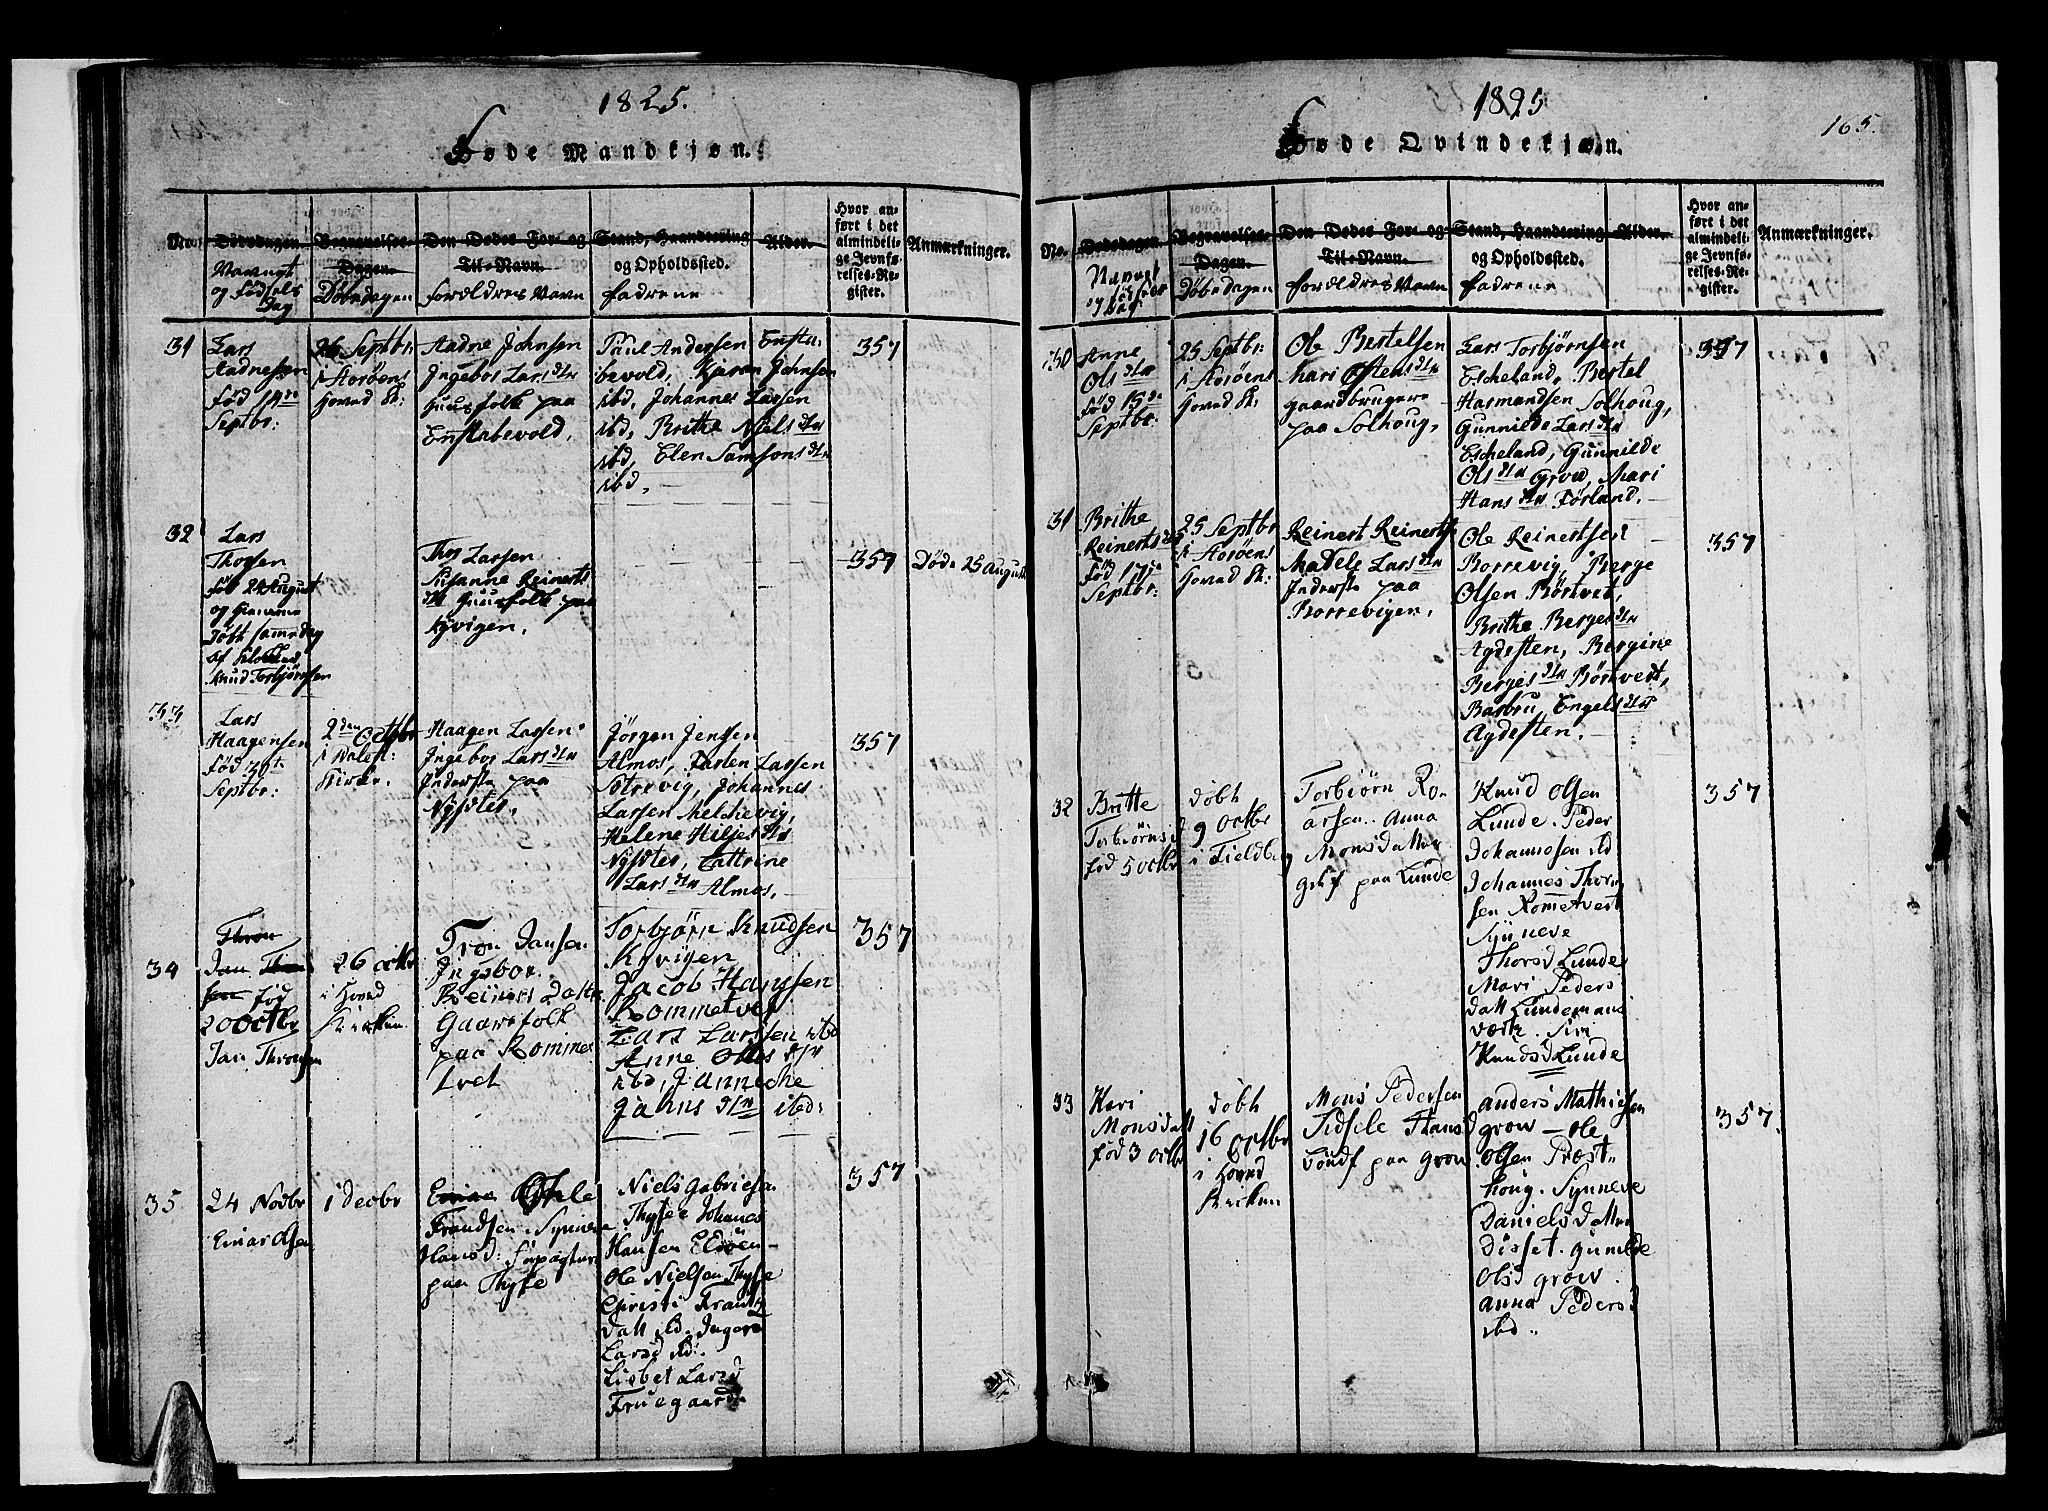 1825.
Føde Mandkjøn.
No.
Dødsdagen.
Navnet
og Fødsels
Dag
Begravelses-
Dagen.
Døbedagen
Den Dødes For- og
Til-Navn.
Forældres Navn
Stand, Haandtering
og Opholdssted.
Fadrene
Alder.
Hvor an-
ført i det
almindeli-
ge Jevnfø-
relses-Re-
gister.
Anmærkninger.
31
Lars
Aadnessen
fød 14de
Septbr:
25 Septbr:
i Storøens
Hoved K:
Aadne Johnsen
Ingebor Larsdtr
Huusfolk paa
Enstabevold.
Paul Andersen Ensta-
bevold, Kjaran Johnsen
ibd, Johannes Larsen
ibd, Brithe Nielsdtr
ibd, Elen Samsonsdtr
ibd.
357
32
Lars
Thorsen
fød 24 August
og hiemme
døbt samedag
af
Knud Torbjørnsen
Thor Larsen
Susanne Reinerts
dtr Huusfolk paa
Kyvigen.
357
Døde 25 August
33
Lars
Haagensen
fød 30te
Septbr:
2den Octbr
i Walest:
Kirke.
Haagen Larsen
Ingebor Larsdtr
Inderste paa
Nysøter.
Jørgen Jensen
Almos, Tarten Larsen
Sotrevig, Johannes
Larsen Melchevig,
Helene Hiljesdtr
Nysøter, Cattrine
Larsdtr Almos.
357
34
Thron
Jan Thron
sen fød
20 Octbr
Jan Thronsen
26 octbr
i Hoved
Kirken
Tron Jansen
Ingebor
Reiners Datter
Gaardfolk
paa Rommet
tvet
Torbjørn Knudsen
Kyvigen
Jacob Hanssen
Rommetvet
Lars Larssen ibd
Anne Olles dtr
ibd, Janneche
Jahns dtr ibd:
357
35
24 Novbr
Einar Olsen
1 decbr
Einar Ohle
Frandsen. Synneva
Hansd:
paa Thyse
Niels Gabrielsen
Thyse Johanes
Hansen Eldøen
Ole Nielsen Thyse
Christi Frantz
Datt ibd. Inger
Larsd ibd.
Lisbet Larsd
Fruegaard
357
1825
165.
Føde Qvindekjøn.
No.
Dødsdagen.
Navnet
og Fødsels
Dag
Begravelses-
Dagen.
Døbedagen
Den Dødes For- og
Til-Navn.
Forældres Navn
Stand, Haandtering
og Opholdssted.
Fadrene
Alder.
Hvor an-
ført i det
almindeli-
ge Jevnfø-
relses-Re-
gister.
Anmærkninger.
30
Anne
Olsdtr
fød 15de
Septbr.
25 Septbr:
i Storøens
Hoved K:
Ole Bertelsen
Mari Ostensdtr
gaardbrugere
paa Solhoug,
Lars Torbjørnsen
Escheland, Bertel
Harmandsen Solhoug,
Gunnilde Larsdtr
Escheland, Gunnilde
Olsdtr Grov, Mari
Hansdtr Førland.
357
31
Brithe
Reinertsdtr
fød 17de
Septbr:
25 Septbr
i Storøens
Hoved K:
Reinert Reinerts
Madele Larsdtr
Inderste paa
Borrevigen.
Ole Reinertsen
Borrevig, Berge
Olsen Børtvet,
Brithe Bergesdtr
Agdesten, Bergine
Bergesdtr Børtvet,
Barbru Engelsdtr
Agdesten.
357
32
Britte
Torbiørnsd
fød 5 octbr
døbt
9 octbr
i Fieldberg
Torbiørn Ro-
arsen. Anna
Monsdatter
paa Lunde
Knud Olsen
Lunde. Peder
Johannesen ibd
Johannes Thor-
sen Rometvet
Synneve
Thorsd Lunde
Mari Peders
datt Lundemans
værk. Siri
Knudsd Lunde
357
33
Kari
Monsdatt
fød 3 octbr
døbt
16 Octbr
i Hoved
Kirken
Mons Pedersen
Sidsele Hansd
paa grov
Anders Mathiesen
grow - Ole
Olsen Præst-
houg. Synneve
Daniels datter
Disset. Gunilde
Olsd grow.
Anna Pedersd
ibd.
357